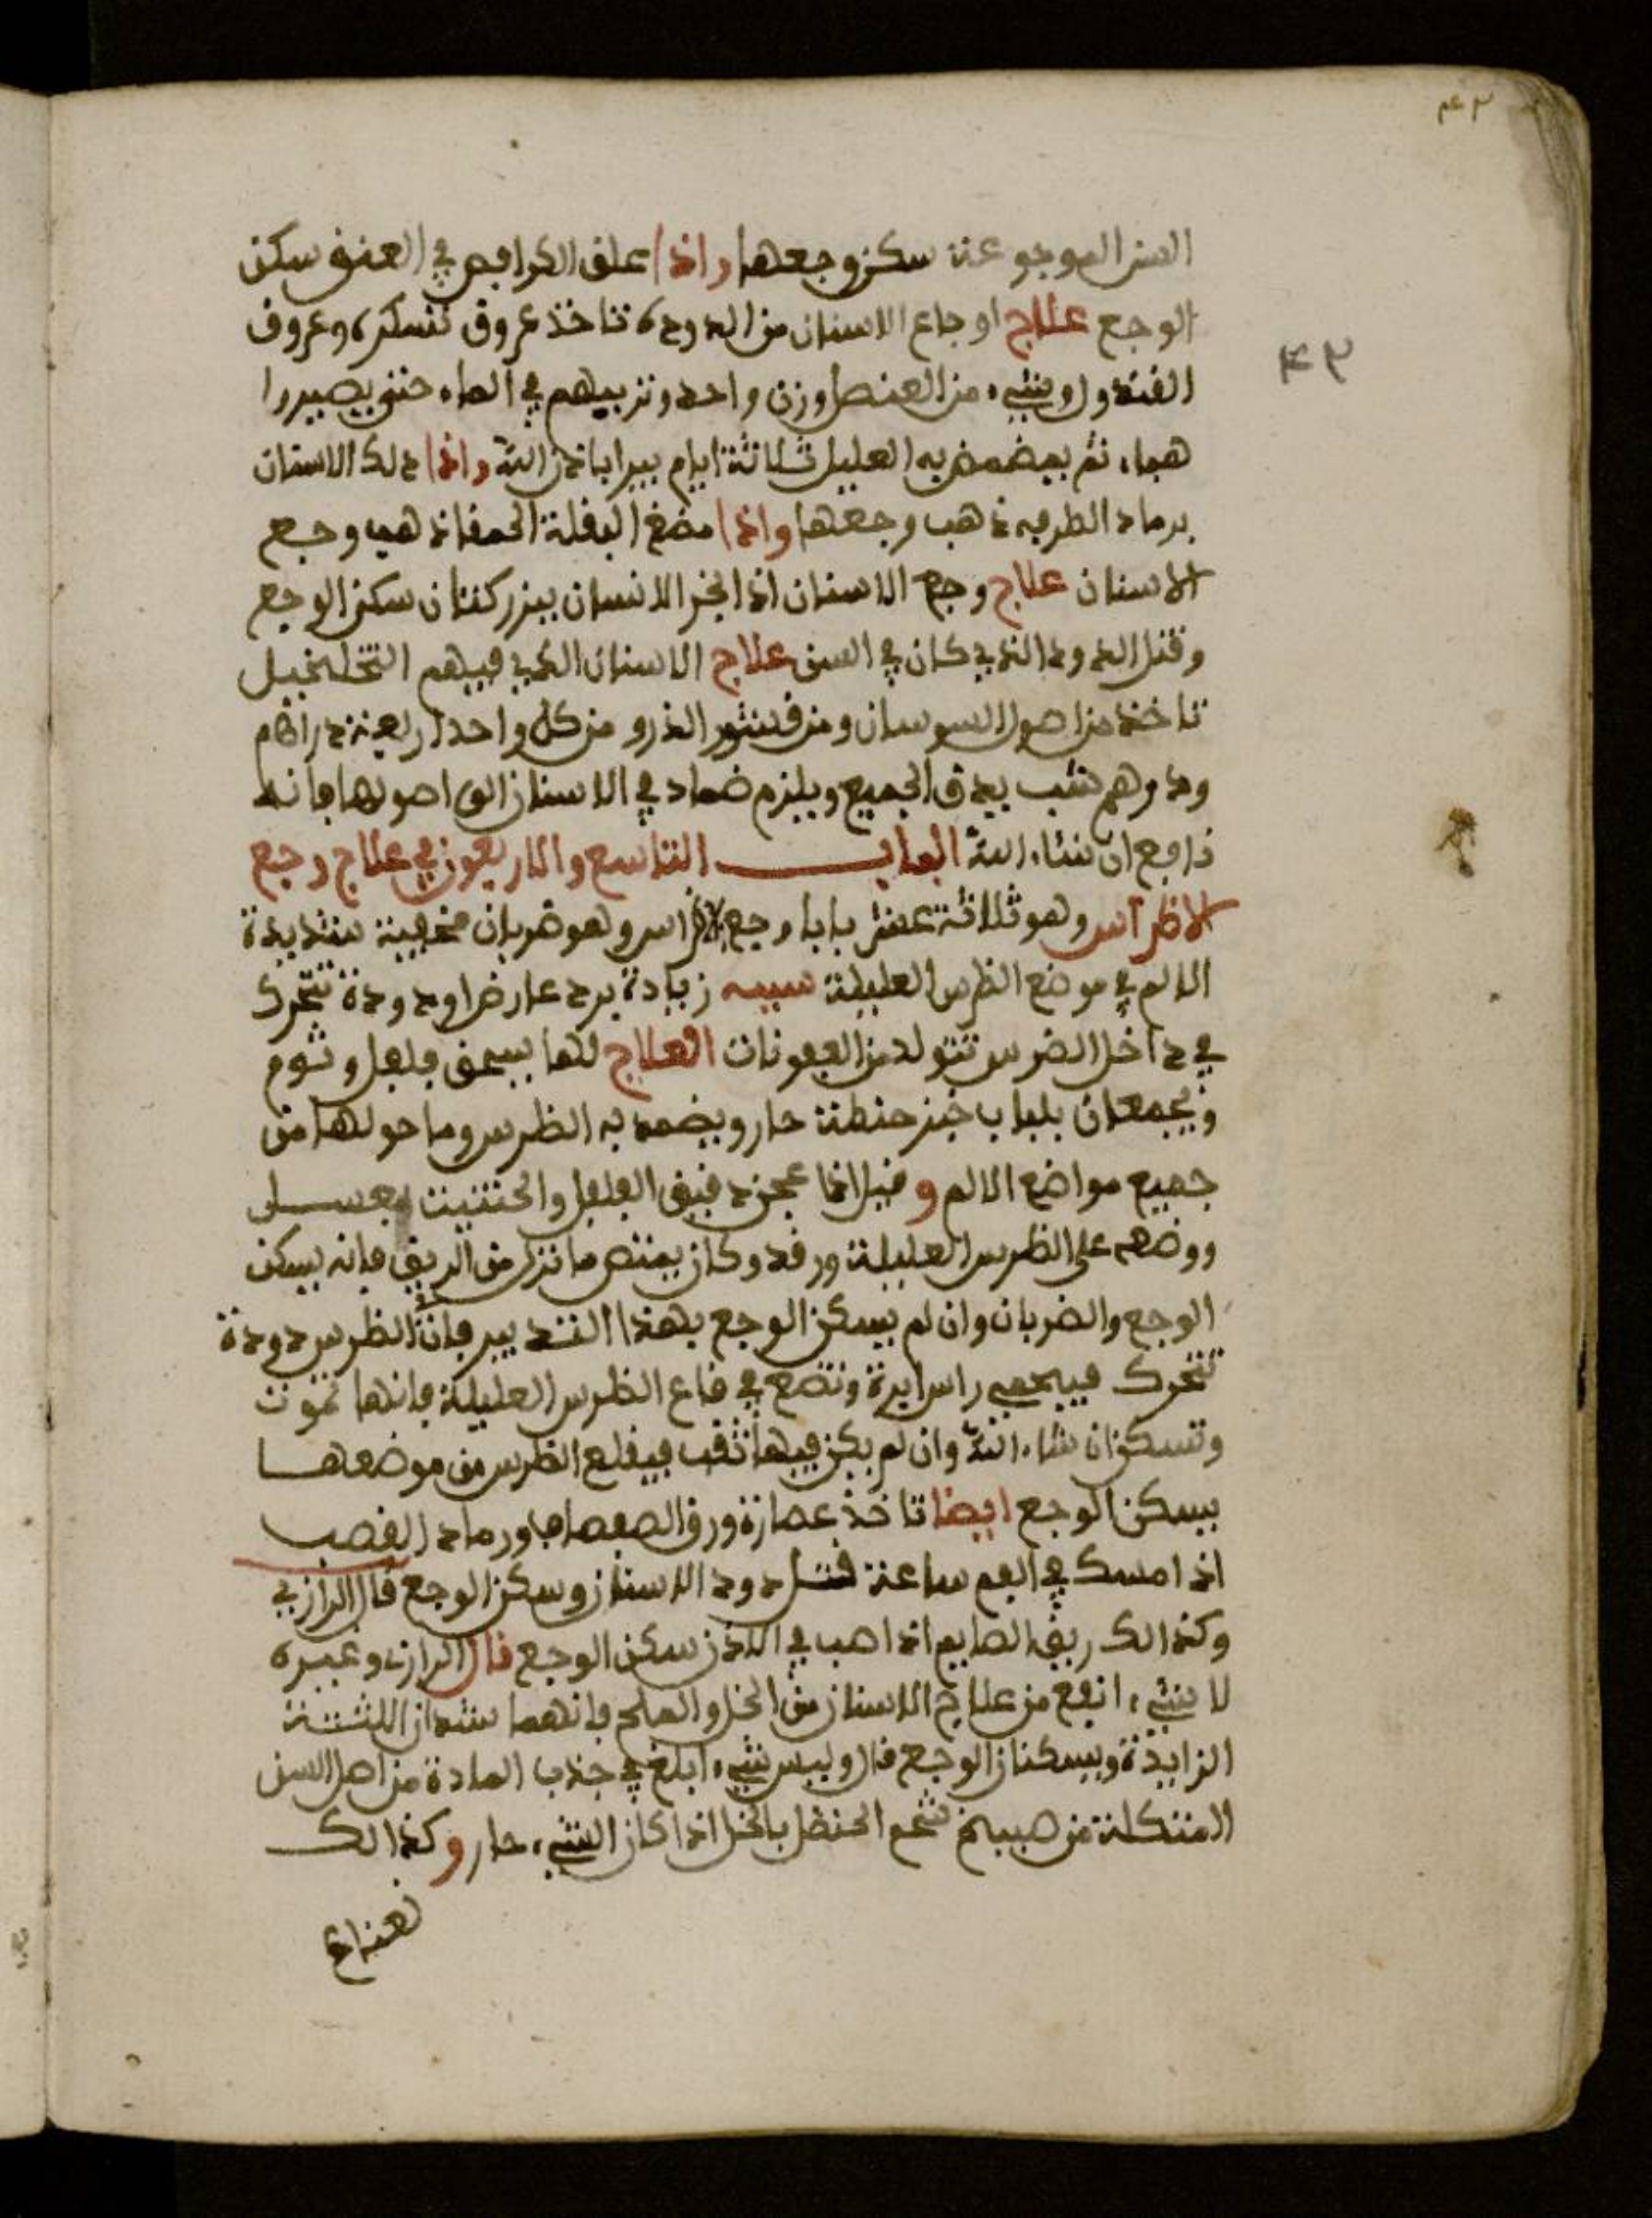 ٤٣
٤٣
السن الموجوعة سكن وجعها واذا علق الكرافص في العنق سكن
الوجع علاج اوجاع الاسنان من الدودة تاخذ عروق تسكرة وعروف
الفندول وشيء من العنصل وزن واحد وتربيهم في الماء حتى يصيروا
هباء ثم يمضمض به العليل ثلاثة ايام يبرا باذن الله واذا دلك الاسنان
برماد الطرفه ذهب وجعها واذا مضغ البقلة الحمقا ذهب وجع
الاسنان علاج وجع الاسنان اذا بخر الانسان ببزر كتان سكن الوجع
وقتل الدود الذي كان في السن علاج الاسنان الذي فيهم التخلخيل
تاخذ من اصول السوسان ومن قشور الذرو من كل واحد اربعة دراهم
ودرهم شب يدق الجميع ويلزم ضماد في الاسنان الى اصولها فانه
نافع ان شاء الله الباب التاسع والاربعون في علاج وجع
الاظراس وهو ثلاثة عشر بابا وجع الاظراس وهو ضربان مخفية شديدة
الالم في موضع الظرس العليلة سببه زيادة برد عارض او دودة تتحرك
في داخل الضرس تتولد من العفونات العلاج لها يسحق فلفل وثوم
ويجمعان بلباب خبز حنطة حار ويضمد به الظرس وما حولها من
جميع مواضع الالم و قيل اذا عجن دقيق الفلفل والحنتيت بعسل
ووضعه على الظرس العليلة ورقد وكان يمتص ما نزل من الريق فانه يسكن
الوجع والضربان وان لم يسكن الوجع بهذا التدبير فان الظرس دودة
تتحرك فيحمى راس ابرة وتضع في قاع الظرس العليلة فانها تموت
وتسكن ان شاء الله وان لم يكن فيها ثقب فيقلع الظرس من موضعها
يسكن الوجع ايضا تاخذ عصارة ورق الصفصاف ورماد القصب
اذا امسك في الفم ساعة قتل دود الاسنان وسكن الوجع قال الرازي
وكذالك ريق الصايم اذا صب في الاذن سكن الوجع قال الرازي وغيره
لا شيء انفع من علاج الاسنان من الخل والملح فانهما يشدان اللثة
الزايدة ويسكنان الوجع قال وليس شيء ابلغ في جذب المادة من اصل السن
المتكلة من طبيخ شحم الحنظل بالخل اذا كان الشيء حار وكذالك
نعناع